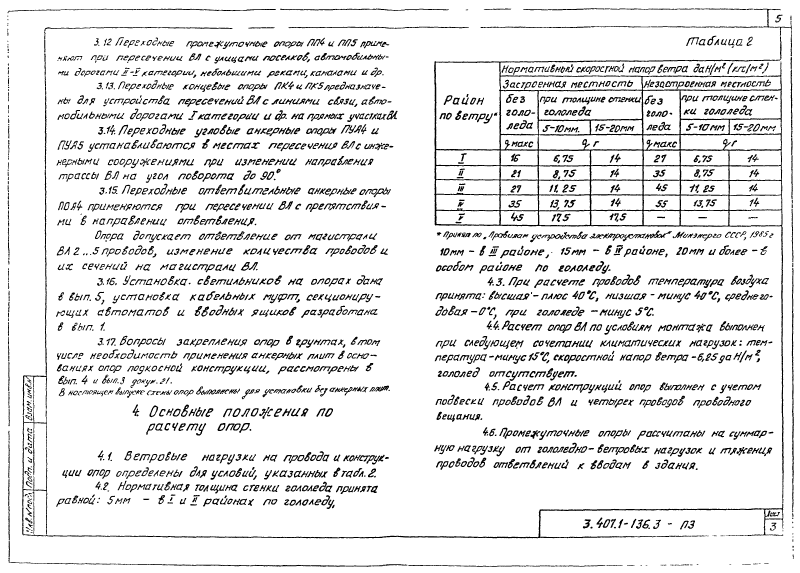 5
3.12 Переходные промежуточные опоры ПП4 и ПП5 приме-
няют при пересечении ВЛ с улицами поселков, автомобильны-
ми дорогами II-V категории, небольшими реками, каналами и др.
3.13. Переходные концевые опоры ПК4 и ПК5 предназначе-
ны для устройства пересечений ВЛ с линиями связи, авто-
мобильными дорогами I категории и др. на прямых участках ВЛ.
3.14. Переходные угловые анкерные опоры ПУА4 и
ПУА5 устанавливаются в местах пересечения ВЛ с инже-
нерными сооружениями при изменении направления
трассы ВЛ на угол поворота до 90.°
3.15. Переходные ответвительные анкерные опоры
ПОА4 применяются при пересечении ВЛ с препятствия-
ми в направлении ответвления.
Опора допускает ответвление от магистрали
ВЛ 2...5 проводов, изменение количества проводов и
их сечений на магистрали ВЛ.
3.16. Установка светильников на опорах дана
в вып. 5, установка кабельных муфт, секционирую-
ющих автоматов и вводных ящиков разработана
в вып. 1.
3.17. Вопросы закрепления опор в грунтах, в том
числе необходимость применения анкерных плит в осно-
ваниях опор подкосной конструкции, рассмотрены в
вып. 4 и вып. 3 докум. 21.
В настоящем выпуске схемы опор выполнены для установки без анкерных плит.
4. Основные положения по
расчету опор.
4.1. Ветровые нагрузки на провода и конструк-
ции опор определены для условий, указанных в табл. 2.
4.2. Нормативная толщина стенки гололеда принята
равной: 5мм - в I и II районах по гололеду,
Таблица 2
Район по ветру* | Нормативный скоростной напор ветра даН/м² (кгс/м²)
Застроенная местность | Незастроенная местность
без гололеда | при толщине стенки гололеда | без гололеда | при толщине стен-ки гололеда
5-10мм. | 15-20мм | 5-10мм | 15-20мм
q макс | q г | q макс | q г
I | 16 | 6,75 | 14 | 27 | 6,75 | 14
II | 21 | 8,75 | 14 | 35 | 8,75 | 14
III | 27 | 11,25 | 14 | 45 | 11,25 | 14
IV | 35 | 13,75 | 14 | 55 | 13,75 | 14
V | 45 | 17,5 | 17,5 | — | — | —
* Принят по „Правилам устройства электроустановок" Минэнерго СССР, 1985г
10мм - в III районе, 15мм - в IV районе, 20мм и более - в
особом районе по гололеду.
4.3. При расчете проводов температура воздуха
принята: высшая - плюс 40°С, низшая - минус 40°С, среднего-
довая - 0°С, при гололеде - минус 5°С.
4.4. Расчет опор ВЛ по условиям монтажа выполнен
при следующем сочетании климатических нагрузок: тем-
пература - минус 15°С, скоростной напор ветра - 6,25 даН/м²,
гололед отсутствует.
4.5. Расчет конструкций опор выполнен с учетом
подвески проводов ВЛ и четырех проводов проводного
вещания.
4.6. Промежуточные опоры рассчитаны на суммар-
ную нагрузку от гололедно-ветровых нагрузок и тяжения
проводов ответвлений к вводам в здания.
Инв.№ подл. Подп. и дата Взам. инв.№
3.407.1-136.3 - ПЗ
Лист
3